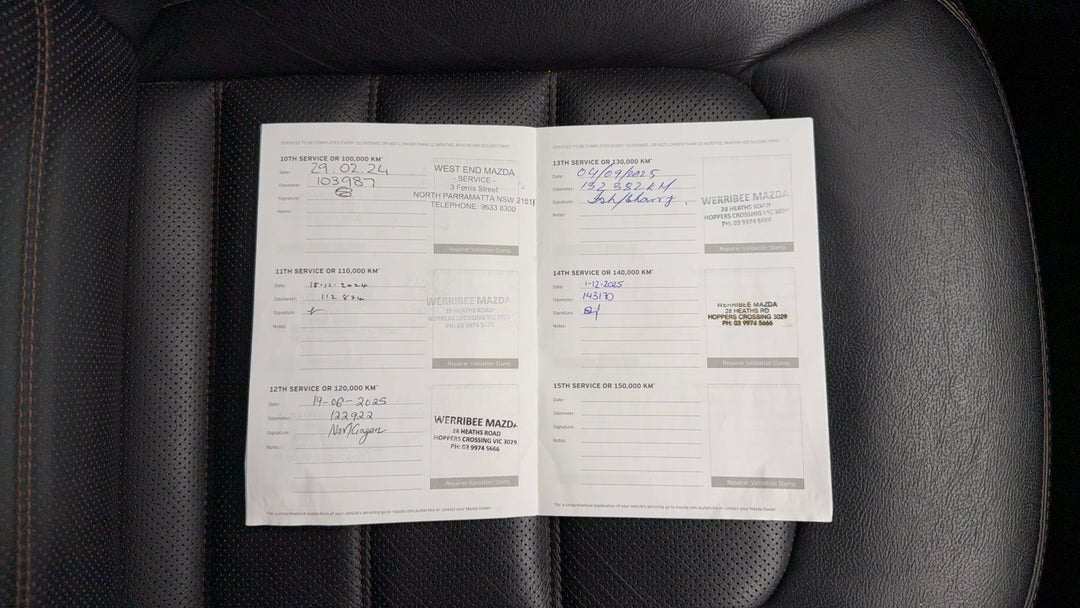 SERVICES TO BE COMPLETED EVERY 10,000KMS, OR NOT LONGER THAN 12 MONTHS, WHICHEVER OCCURS FIRST
10TH SERVICE OR 100,000 KM*
Date: 29.02.24
Odometer: 103987
Signature:
Notes:
WEST END MAZDA
- SERVICE -
3 Ferris Street
NORTH PARRAMATTA NSW 2151
TELEPHONE: 9633 8300
Repairer Validation Stamp
11TH SERVICE OR 110,000 KM*
Date: 18-11-2024
Odometer: 112 874
Signature:
Notes:
WERRIBEE MAZDA
28 HEATHS ROAD
HOPPERS CROSSING VIC 3029
PH: 03 9974 5666
Repairer Validation Stamp
12TH SERVICE OR 120,000 KM*
Date: 19-06-2025
Odometer: 122922
Signature:
Notes:
WERRIBEE MAZDA
28 HEATHS ROAD
HOPPERS CROSSING VIC 3029
PH: 03 9974 5666
Repairer Validation Stamp
*For a comprehensive explanation of your vehicle's servicing go to mazda.com.au/service or contact your Mazda Dealer
SERVICES TO BE COMPLETED EVERY 10,000KMS, OR NOT LONGER THAN 12 MONTHS, WHICHEVER OCCURS FIRST
13TH SERVICE OR 130,000 KM*
Date: 04/09/2025
Odometer: 132 582 KM
Signature:
Notes:
WERRIBEE MAZDA
28 HEATHS ROAD
HOPPERS CROSSING VIC 3029
PH: 03 9974 5666
Repairer Validation Stamp
14TH SERVICE OR 140,000 KM*
Date: 1-12-2025
Odometer: 143170
Signature:
Notes:
WERRIBEE MAZDA
28 HEATHS RD
HOPPERS CROSSING 3029
PH: 03 9974 5666
Repairer Validation Stamp
15TH SERVICE OR 150,000 KM*
Date:
Odometer:
Signature:
Notes:
Repairer Validation Stamp
*For a comprehensive explanation of your vehicle's servicing go to mazda.com.au/service or contact your Mazda Dealer